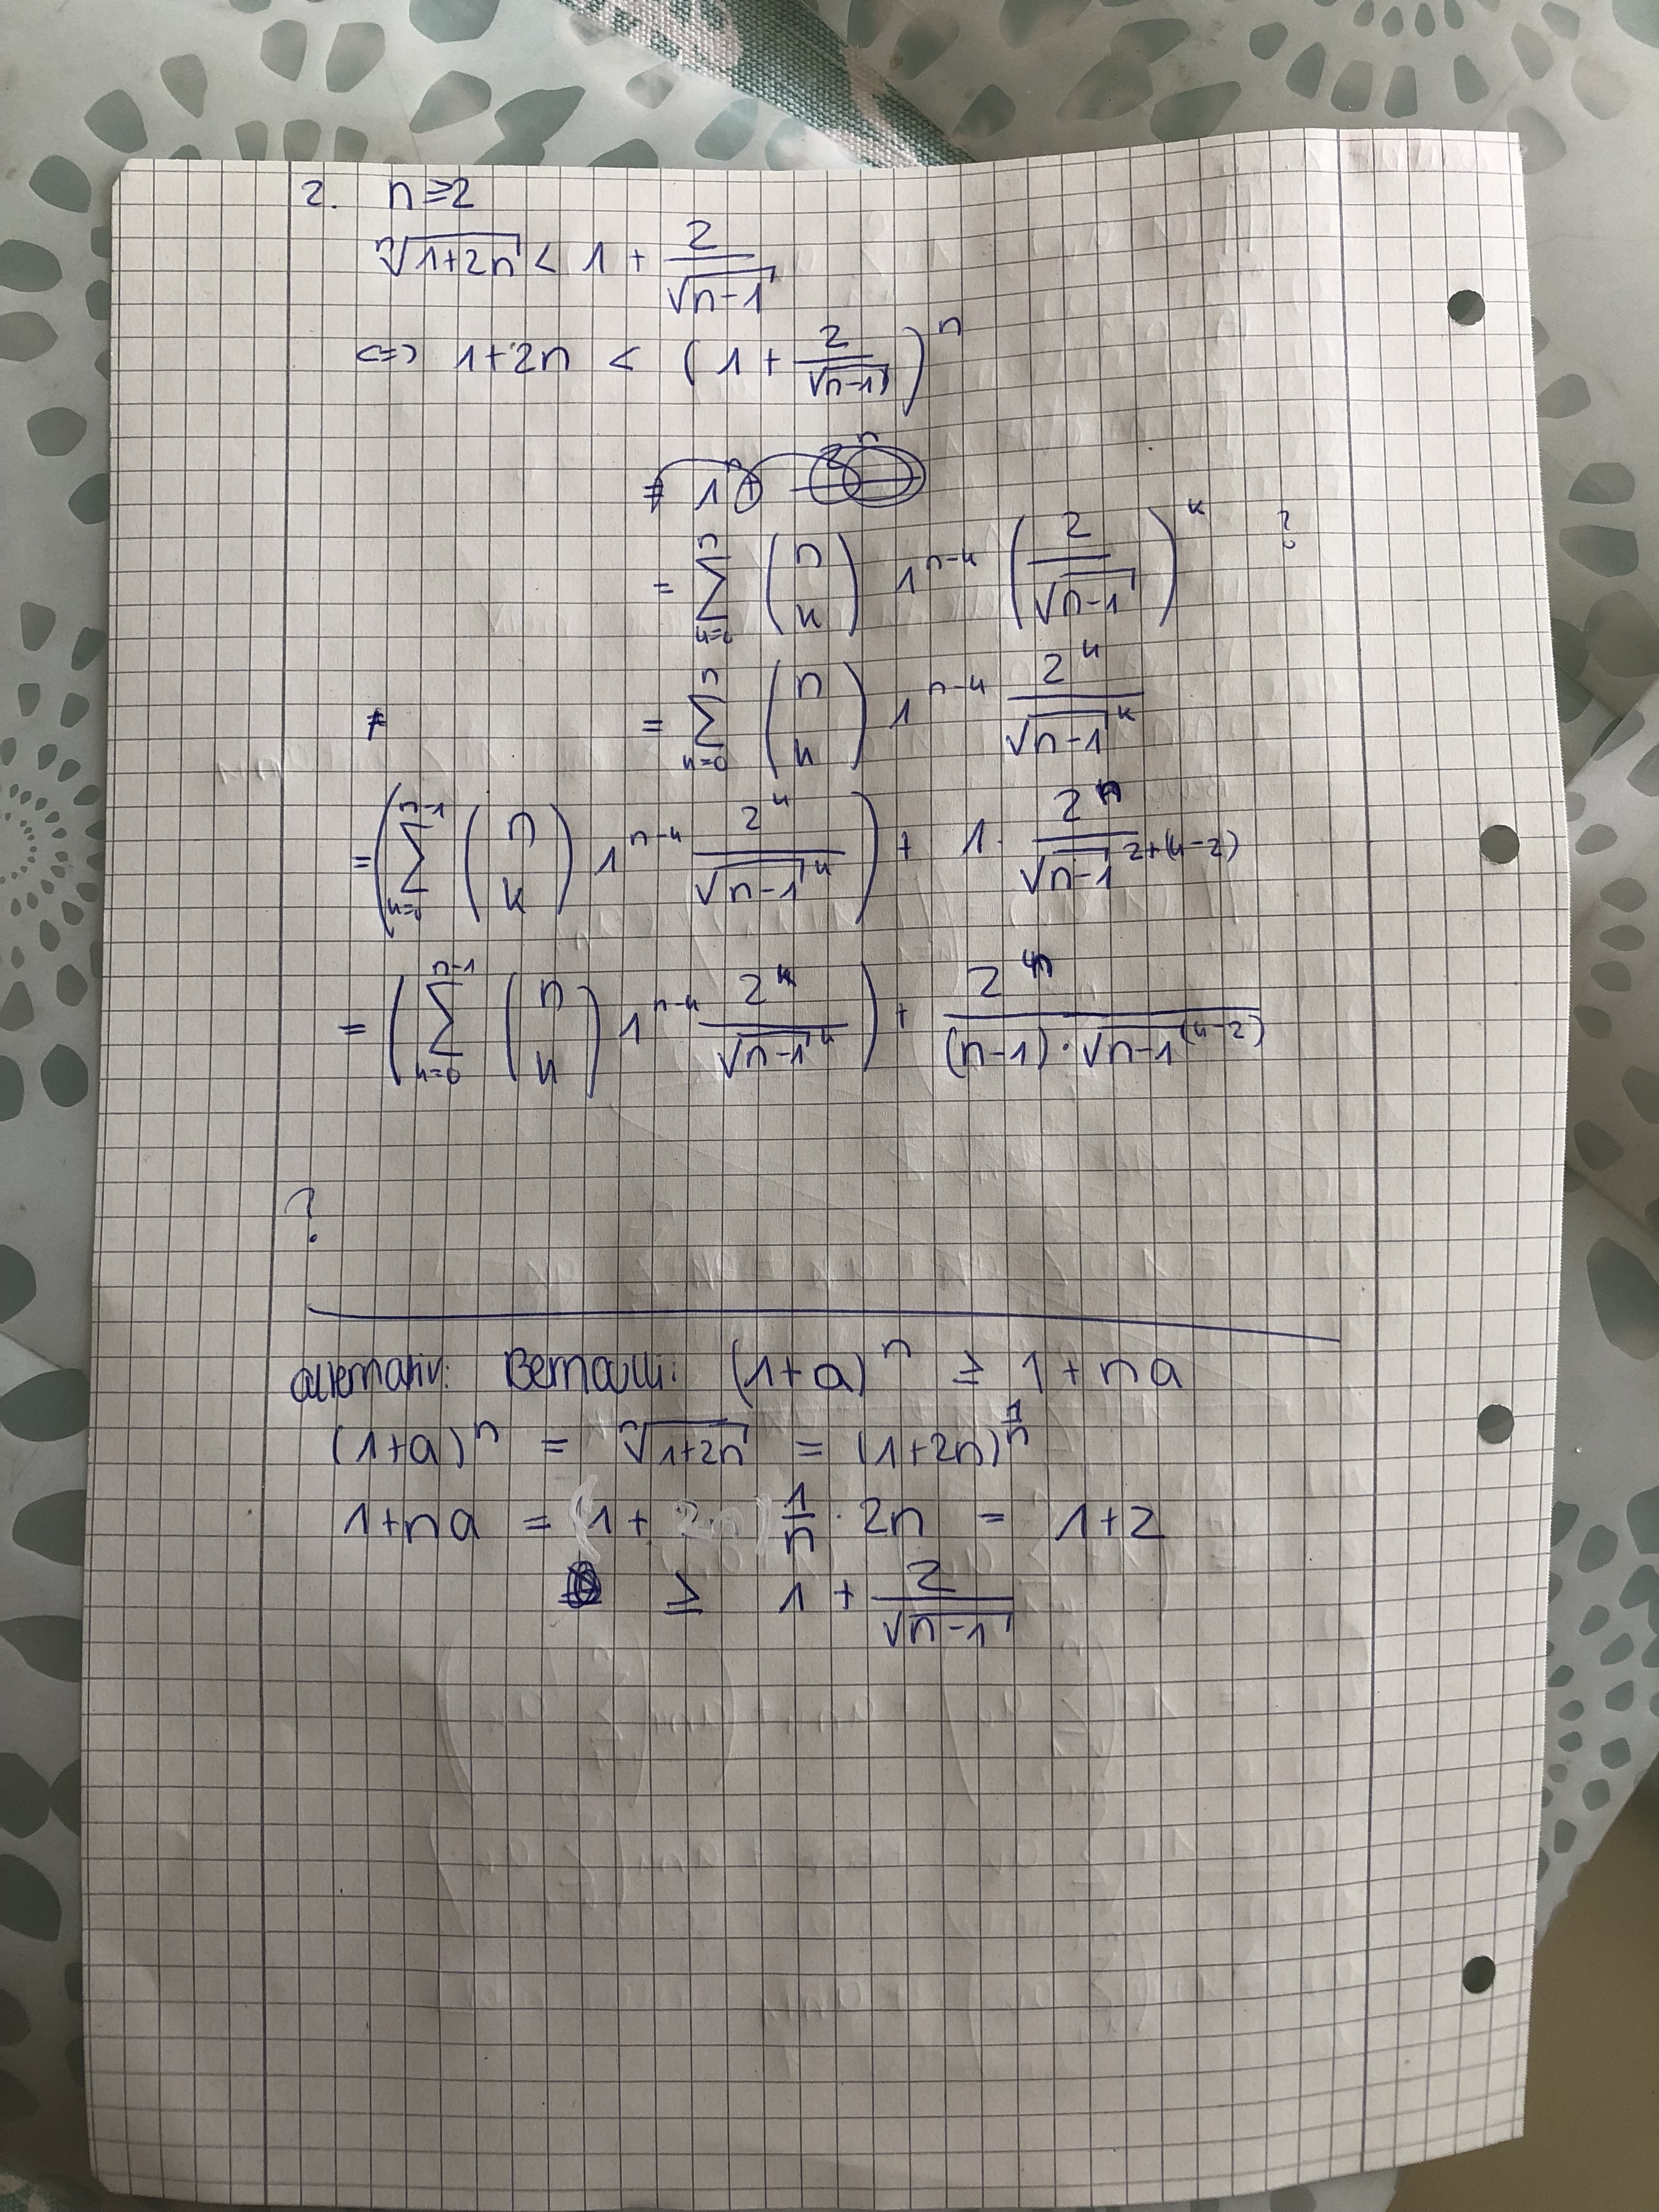 2. n ≥ 2
ⁿ√(1+2n) < 1 + 2/√(n-1)
<=> 1+2n < (1 + 2/√(n-1))^n
= Σ_{k=0}^{n} (n k) 1^{n-k} (2/√(n-1))^k ?
≠ = Σ_{k=0}^{n} (n k) 1^{n-k} 2^k/√(n-1)^k
= (Σ_{k=0}^{n-1} (n k) 1^{n-k} 2^k/√(n-1)^k) + 1 · 2^n/√(n-1)^{2+(n-2)}
= (Σ_{k=0}^{n-1} (n k) 1^{n-k} 2^k/√(n-1)^k) + 2^n/((n-1)·√(n-1)^{(n-2)})
?
alternativ: Bernoulli: (1+a)^n ≥ 1+na
(1+a)^n = ⁿ√(1+2n) = (1+2n)^{1/n}
1+na = 1 + 1/n · 2n = 1+2
≥ 1 + 2/√(n-1)